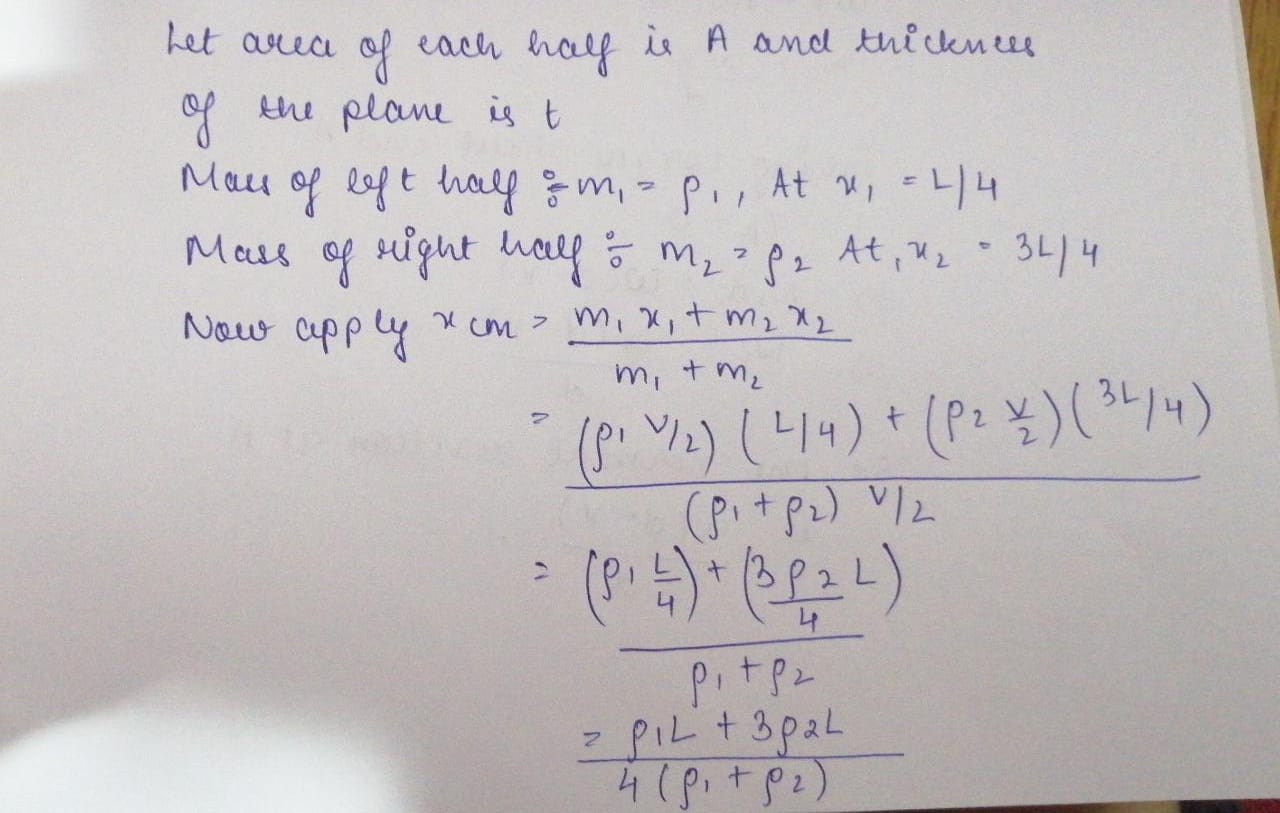 Let area of each half is A and thickness
of the plane is t
Mass of left half ÷ m₁ = ρ₁, At x₁ = L/4
Mass of right half ÷ m₂ = ρ₂ At, x₂ = 3L/4
Now apply x cm = m₁x₁ + m₂x₂
m₁ + m₂
= (ρ₁ V/2) (L/4) + (ρ₂ V/2) (3L/4)
(ρ₁ + ρ₂) V/2
= (ρ₁ L/4) + (3ρ₂L/4)
ρ₁ + ρ₂
= ρ₁L + 3ρ₂L
4(ρ₁ + ρ₂)